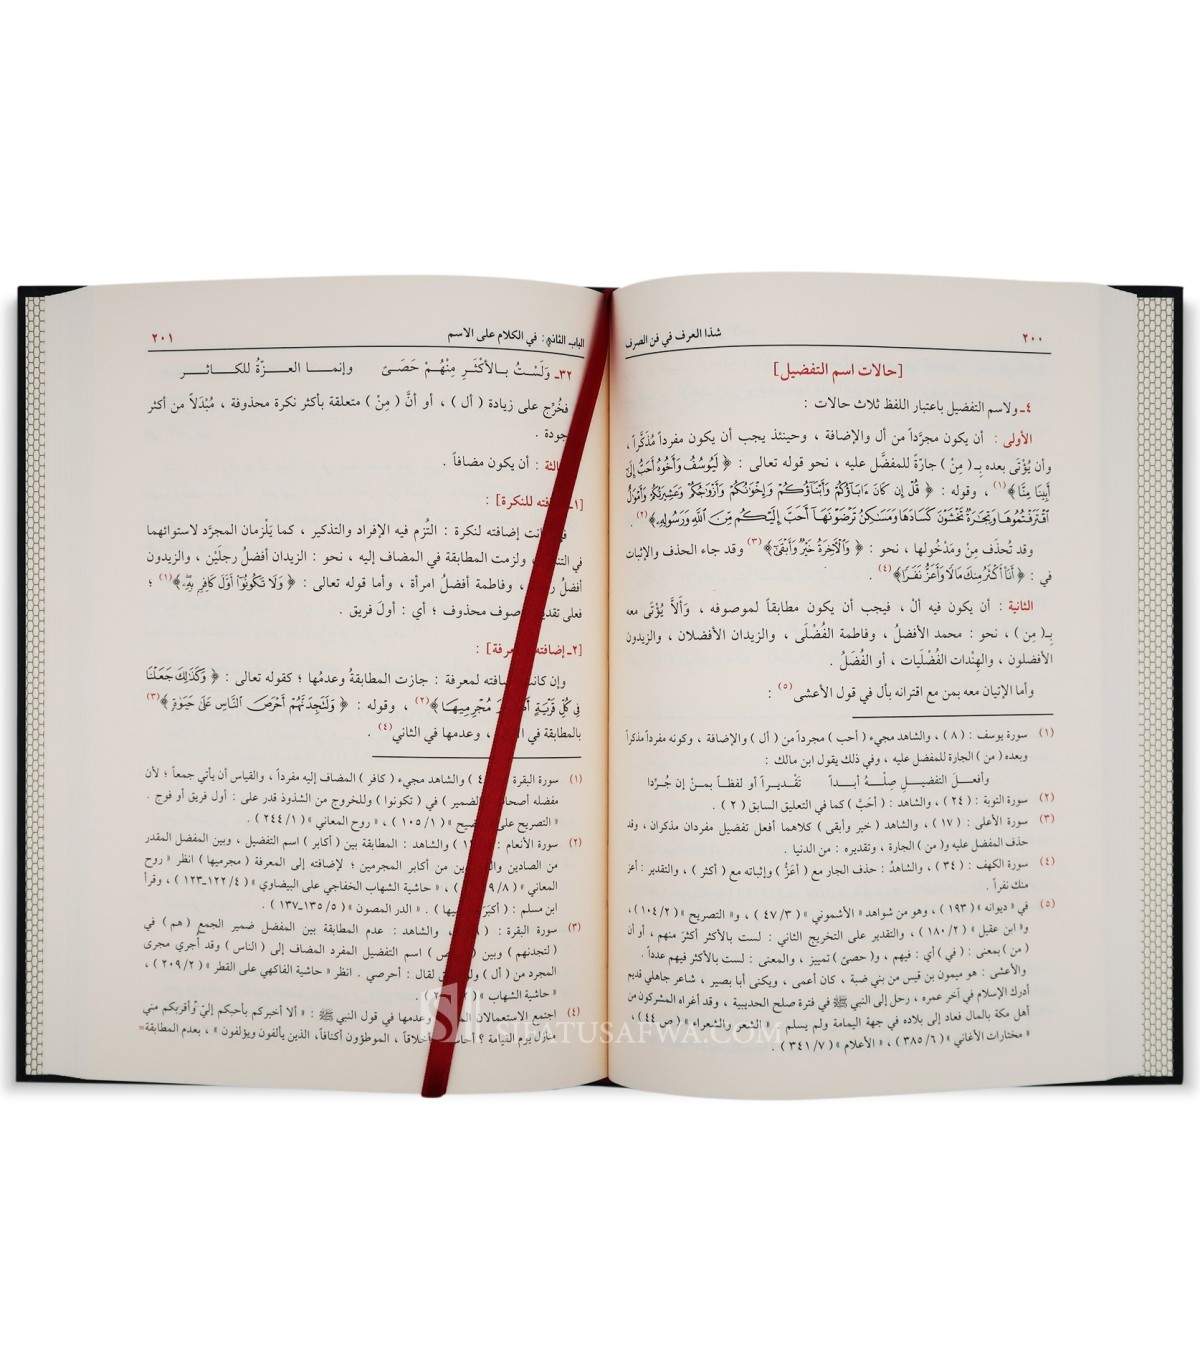 ٢٠٠
شذا العرف في فن الصرف
[حالات اسم التفضيل]
٤ـ ولاسم التفضيل باعتبار اللفظ ثلاث حالات :
الأولى : أن يكون مجرَّداً من أل والإضافة ، وحينئذ يجب أن يكون مفرداً مُذَكَّراً ،
وأن يُؤْتَى بعده بـ( مِنْ ) جارَّةً للمفضَّل عليه ، نحو قوله تعالى : ﴿ لَيُوسُفُ وَأَخُوهُ أَحَبُّ إِلَىٰٓ
أَبِينَا مِنَّا ﴾(١) ، وقوله : ﴿ قُلْ إِن كَانَ ءَابَآؤُكُمْ وَأَبْنَآؤُكُمْ وَإِخْوَٰنُكُمْ وَأَزْوَٰجُكُمْ وَعَشِيرَتُكُمْ وَأَمْوَٰلٌ
ٱقْتَرَفْتُمُوهَا وَتِجَٰرَةٌ تَخْشَوْنَ كَسَادَهَا وَمَسَٰكِنُ تَرْضَوْنَهَآ أَحَبَّ إِلَيْكُم مِّنَ ٱللَّهِ وَرَسُولِهِۦ ﴾(٢) .
وقد تُحذَف مِنْ ومَدْخُولها ، نحو : ﴿ وَٱلْأٓخِرَةُ خَيْرٌ وَأَبْقَىٰٓ ﴾(٣) وقد جاء الحذف والإثبات
في : ﴿ أَنَا۠ أَكْثَرُ مِنكَ مَالًا وَأَعَزُّ نَفَرًا ﴾(٤) .
الثانية : أن يكون فيه ألْ ، فيجب أن يكون مطابقاً لموصوفه ، وَأَلاَّ يُؤْتَى معه
بـ( مِن ) ، نحو : محمد الأفضلُ ، وفاطمة الفُضْلَى ، والزيدان الأفضلان ، والزيدون
الأفضلون ، والهِنْدات الفُضْلَيات ، أو الفُضَلُ .
وأما الإتيان معه بمن مع اقترانه بأل في قول الأعشى(٥) :
(١) سورة يوسف : ( ٨ ) ، والشاهد مجيء ( أحب ) مجرداً من ( أل ) والإضافة ، وكونه مفرداً مذكراً
وبعده ( من ) الجارة للمفضل عليه ، وفي ذلك يقول ابن مالك :
وأفعـلَ التفضيـلِ صِلْـهُ أبـداً تَقْـديـراً أو لفظـاً بمـنْ إن جُـرِّدا
(٢) سورة التوبة : ( ٢٤ ) ، والشاهد : ( أحَبَّ ) كما في التعليق السابق ( ٢ ) .
(٣) سورة الأعلى : ( ١٧ ) ، والشاهد ( خير وأبقى ) كلاهما أفعل تفضيل مفردان مذكران ، وقد
حذف المفضل عليه و( من ) الجارة ، وتقديره : من الدنيا .
(٤) سورة الكهف : ( ٣٤ ) ، والشاهدُ : حذف الجار مع ( أعَزُّ ) وإثباته مع ( أكثر ) ، والتقدير : أعز
منك نفراً .
(٥) في « ديوانه » ( ١٩٣ ) ، وهو من شواهد « الأشموني » ( ٤٧/٣ ) ، و« التصريح » ( ١٠٤/٢ ) ،
و« ابن عقيل » ( ١٨٠/٢ ) ، والتقدير على التخريج الثاني : لست بالأكثر أكثرَ منهم ، أو أن
( من ) بمعنى : ( في ) أي : فيهم ، و( حصىً ) تمييز ، والمعنى : لست بالأكثر فيهم عدداً .
والأعشى : هو ميمون بن قيس من بني ضبة ، كان أعمى ، ويكنى أبا بصير ، شاعر جاهلي قديم
أدرك الإسلام في آخر عمره ، رحل إلى النبي ﷺ في فترة صلح الحديبية ، وقد أغراه المشركون من
أهل مكة بالمال فعاد إلى بلاده في جهة اليمامة ولم يسلم . « الشعر والشعراء » ( ص ٤٤ ) ،
« مختارات الأغاني » ( ٣٨٥/٦ ) ، « الأعلام » ( ٣٤١/٧ ) .
الباب الثاني : في الكلام على الاسم
٢٠١
٣٢ـ وَلَسْـتُ بـالأكْثَـرِ مِنْهُـمْ حَصَـىً وإنمـا العـزَّةُ للكـاثـر
فخُرِّج على زيادة ( أل ) ، أو أنَّ ( مِنْ ) متعلقة بأكثر نكرة محذوفة ، مُبْدَلاً من أكثر
جودة .
الثة : أن يكون مضافاً .
[١ـ إضافته للنكرة] :
انت إضافته لنكرة : التُزم فيه الإفراد والتذكير ، كما يَلْزمان المجرَّد لاستوائهما
في التنـ ، ولزمت المطابقة في المضاف إليه ، نحو : الزيدان أفضلُ رجلَيْن ، والزيدون
أفضلُ ر ، وفاطمة أفضلُ امرأة ، وأما قوله تعالى : ﴿ وَلَا تَكُونُوٓا۟ أَوَّلَ كَافِرٍۭ بِهِۦ ﴾(١) ؛
فعلى تقديـ وصوف محذوف ؛ أي : أولَ فريق .
[٢ـ إضافته عرفة] :
وإن كانـ ضافته لمعرفة : جازت المطابقةُ وعدمُها ؛ كقوله تعالى : ﴿ وَكَذَٰلِكَ جَعَلْنَا
فِى كُلِّ قَرْيَةٍ أَكَـ ـرَ مُجْرِمِيهَا ﴾(٢) ، وقوله : ﴿ وَلَتَجِدَنَّهُمْ أَحْرَصَ ٱلنَّاسِ عَلَىٰ حَيَوٰةٍ ﴾(٣)
بالمطابقة في ا ، وعدمها في الثاني(٤) .
(١) سورة البقرة ٤ ) والشاهد مجيء ( كافر ) المضاف إليه مفرداً ، والقياس أن يأتي جمعاً ؛ لأن
مفضله أصحا الضمير ) في ( تكونوا ) وللخروج من الشذوذ قدر على : أول فريق أو فوج .
« التصريح على ـضيح » ( ١٠٥/١ ) ، « روح المعاني » ( ٢٤٤/١ ) .
(٢) سورة الأنعام : ١ ) والشاهد : المطابقة بين ( أكابر ) اسم التفضيل ، وبين المفضل المقدر
من الصادين والـ ين من أكابر المجرمين ؛ لإضافته إلى المعرفة ( مجرميها ) انظر « روح
المعاني » ( ٩/٨ ) ، « حاشية الشهاب الخفاجي على البيضاوي » ( ١٢٢/٤ـ١٢٣ ) ، وقرأ
ابن مسلم : ( أكبَر يها ) . « الدر المصون » ( ١٣٥/٥ـ١٣٧ ) .
(٣) سورة البقرة : ( ، والشاهد : عدم المطابقة بين المفضل ضمير الجمع ( هم ) في
( لتجدنهم ) وبين ( ص ) اسم التفضيل المفرد المضاف إلى ( الناس ) وقد أُجري مجرى
المجرد من ( أل ) ولـ ق لقال : أحرصي . انظر « حاشية الفاكهي على القطر » ( ٢٠٩/٢ ) ،
« حاشية الشهاب » ( ٢ ) .
(٤) اجتمع الاستعمالان وعدمها في قول النبي ﷺ : « ألا أخبركم بأحبكم إليّ وأقربكم مني
منازل يوم القيامة ؟ أحاسـ أخلاقاً ، الموطؤون أكنافاً، الذين يألفون ويؤلفون » ، بعدم المطابقة=
SIFATUSAFWA.COM